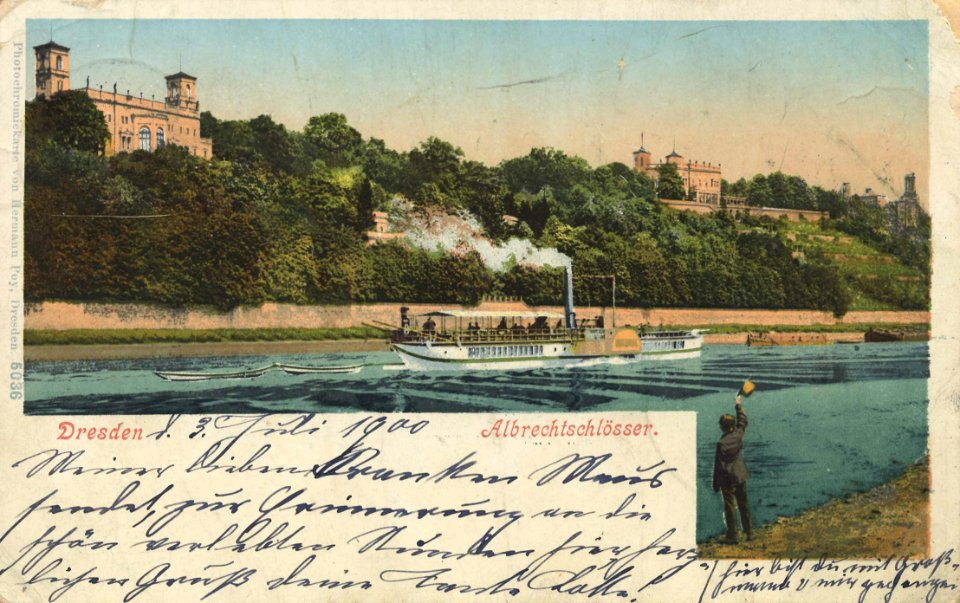 Photochromiekarte von Hermann Poy, Dresden 5036
Dresden d. 3. Juli 1900 Albrechtschlösser.
Meiner lieben Kranken Maus
sendet, zur Erinnerung an die
schön verlebten Stunden hier herz
lichen Gruß deine Tante Lotte.
hier bist du mit Groß-
mama u mir gegangen